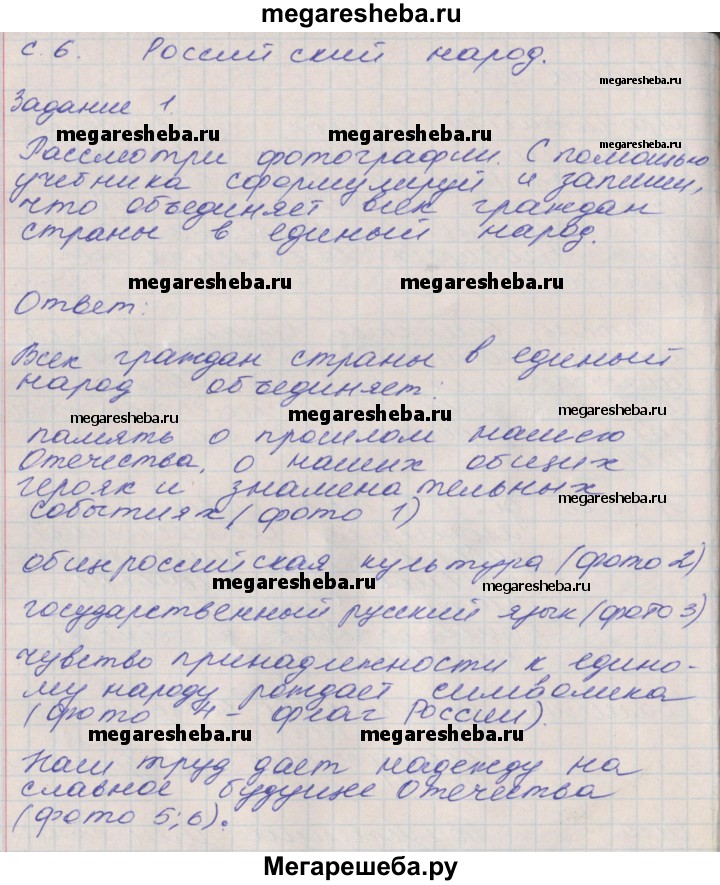 megaresheba.ru
с. 6. Российский народ.
megaresheba.ru
Задание 1
megaresheba.ru megaresheba.ru
megaresheba.ru
Рассмотри фотографии. С помощью
учебника сформулируй и запиши,
что объединяет всех граждан
страны в единый народ.
megaresheba.ru megaresheba.ru
Ответ:
Всех граждан страны в единый
народ объединяет:
megaresheba.ru megaresheba.ru megaresheba.ru
память о прошлом нашего
Отечества, о наших общих
героях и знаменательных
megaresheba.ru
событиях (фото 1)
общероссийская культура (фото 2)
megaresheba.ru megaresheba.ru
государственный русский язык (фото 3)
megaresheba.ru megaresheba.ru
чувство принадлежности к едино-
му народу рождает символика
(фото 4 - флаг России).
megaresheba.ru megaresheba.ru
Наш труд дает надежду на
славное будущее Отечества
(фото 5; 6).
Мегарешеба.ру